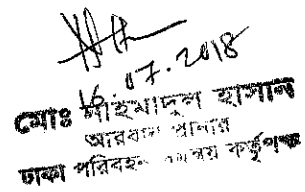 16.07.2018
মোঃ মাইমাদুল হাসান
আরবান প্লানার
ঢাকা পরিবহন সমন্বয় কর্তৃপক্ষ